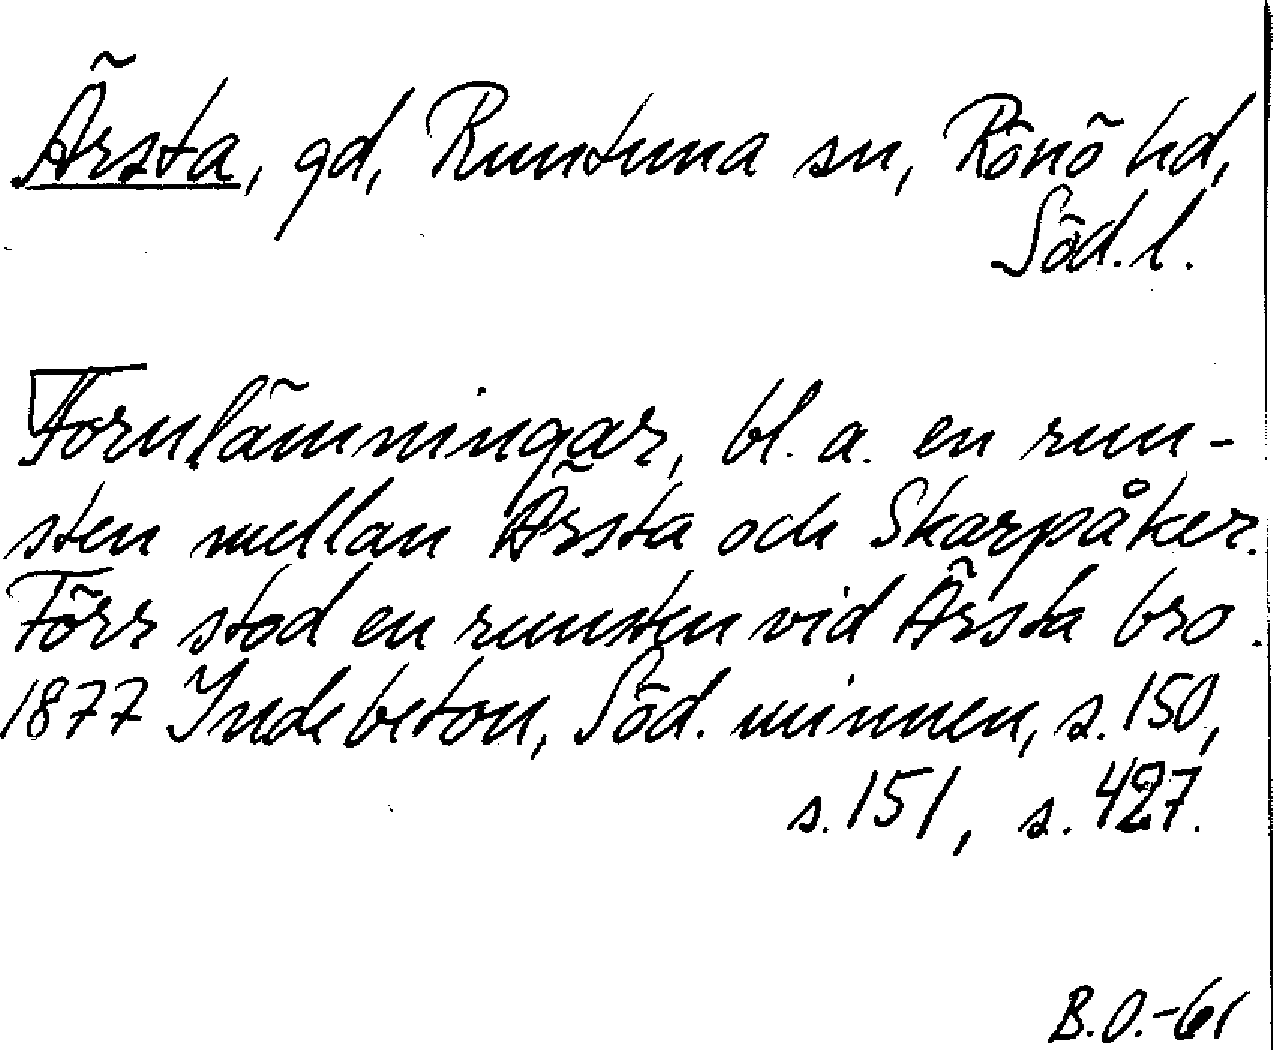 Ärsta, gd, Runtuna sn, Rönö hd,
Söd. l.
Fornlämningar, bl. a. en run-
sten mellan Ärsta och Skarpåker.
Förr stod en runsten vid Ärsta bro.
1877 Indebetou, Söd. minnen, s. 150,
s. 151, s. 427.
B.O.-61